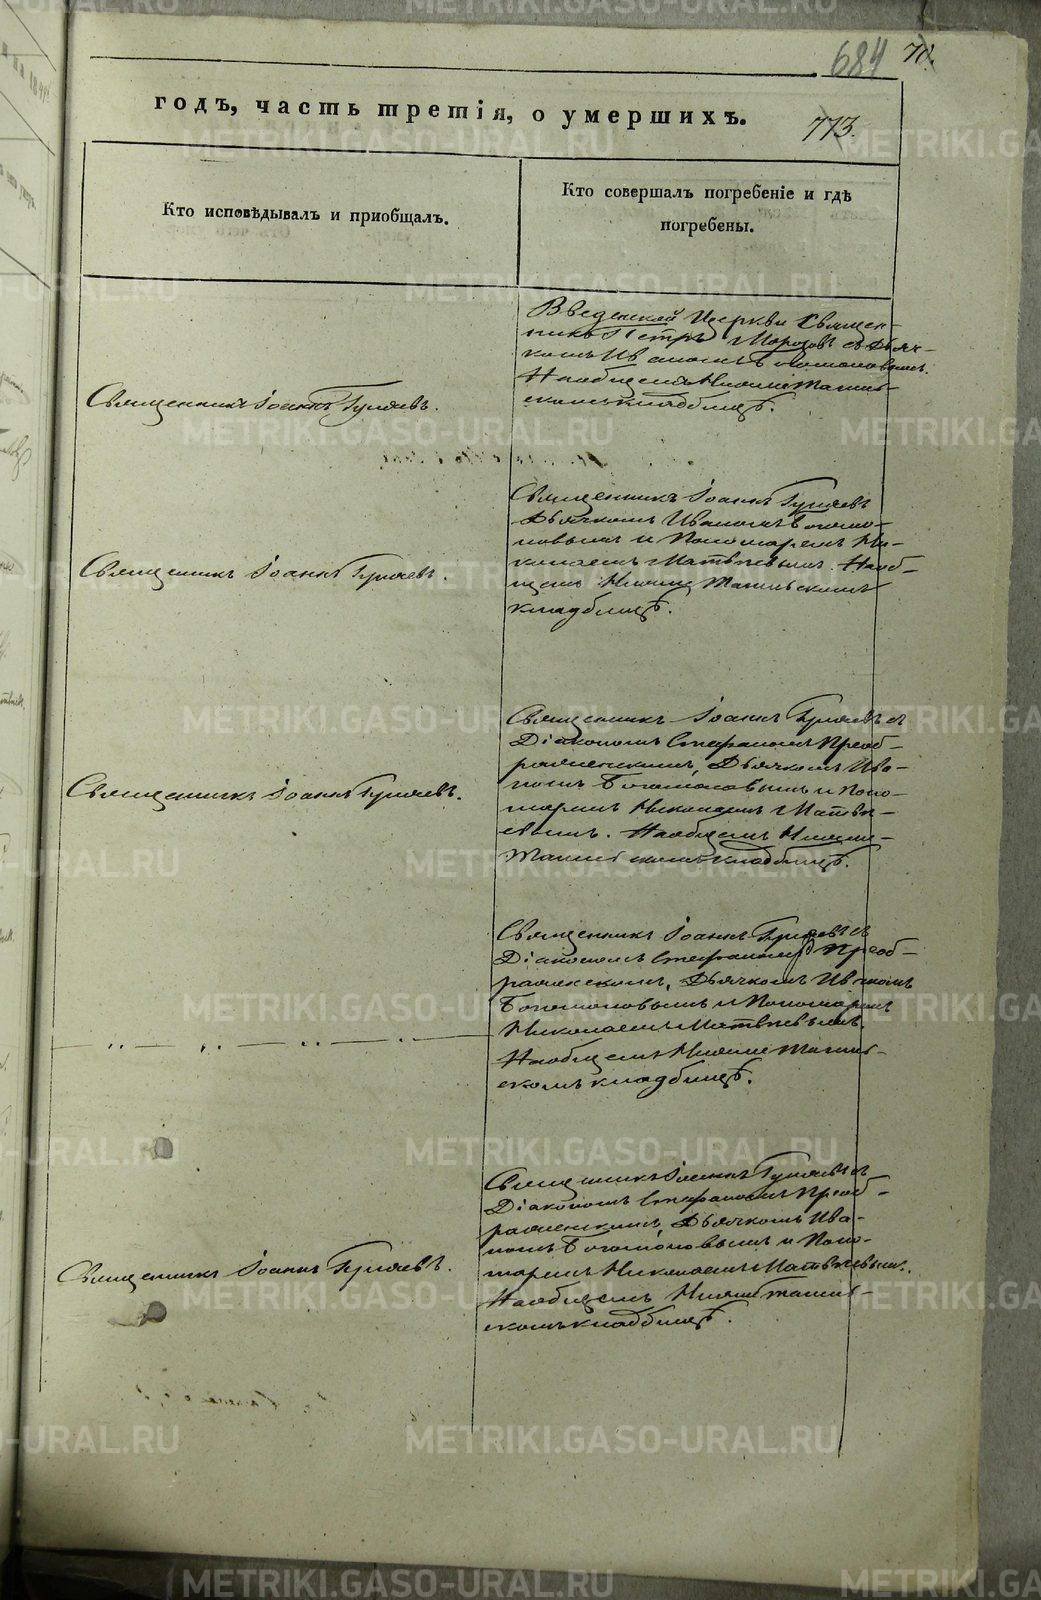 684 70.
годъ, часть третія, о умершихъ. 773.
Кто исповѣдывалъ и пріобщалъ.
Кто совершалъ погребеніе и гдѣ
погребены.
Введенской Церкви Священ-
никъ Петръ Морозовъ съ Дьяч-
комъ Иваномъ Богомоловымъ.
На общемъ Нижне Тагиль-
скомъ кладбищѣ.
Священникъ Іоаннъ Гуляевъ.
Священникъ Іоаннъ Гуляевъ
Дьячкомъ Иваномъ Богомо-
ловымъ и Пономаремъ Ни-
колаемъ Матвѣевымъ. На об-
щемъ Нижне Тагильскомъ
кладбищѣ.
Священникъ Іоаннъ Гуляевъ.
Священникъ Іоаннъ Гуляевъ съ
Діакономъ Стефаномъ Преоб-
раженскимъ, Дьячкомъ Ива-
номъ Богомоловымъ и Поно-
маремъ Николаемъ Матвѣ-
евымъ. На общемъ Нижне-
Тагильскомъ кладбищѣ.
Священникъ Іоаннъ Гуляевъ.
Священникъ Іоаннъ Гуляевъ съ
Діакономъ Стефаномъ Преоб-
раженскимъ, Дьячкомъ Иваномъ
Богомоловымъ и Пономаремъ
Николаемъ Матвѣевымъ.
На общемъ Нижне Тагиль-
скомъ кладбищѣ.
Священникъ Іоаннъ Гуляевъ съ
Діакономъ Стефаномъ Преоб-
раженскимъ, Дьячкомъ Ива-
номъ Богомоловымъ и Поно-
маремъ Николаемъ Матвѣевымъ.
На общемъ Нижне Тагиль-
скомъ кладбищѣ.
Священникъ Іоаннъ Гуляевъ.
METRIKI.GASO-URAL.RU